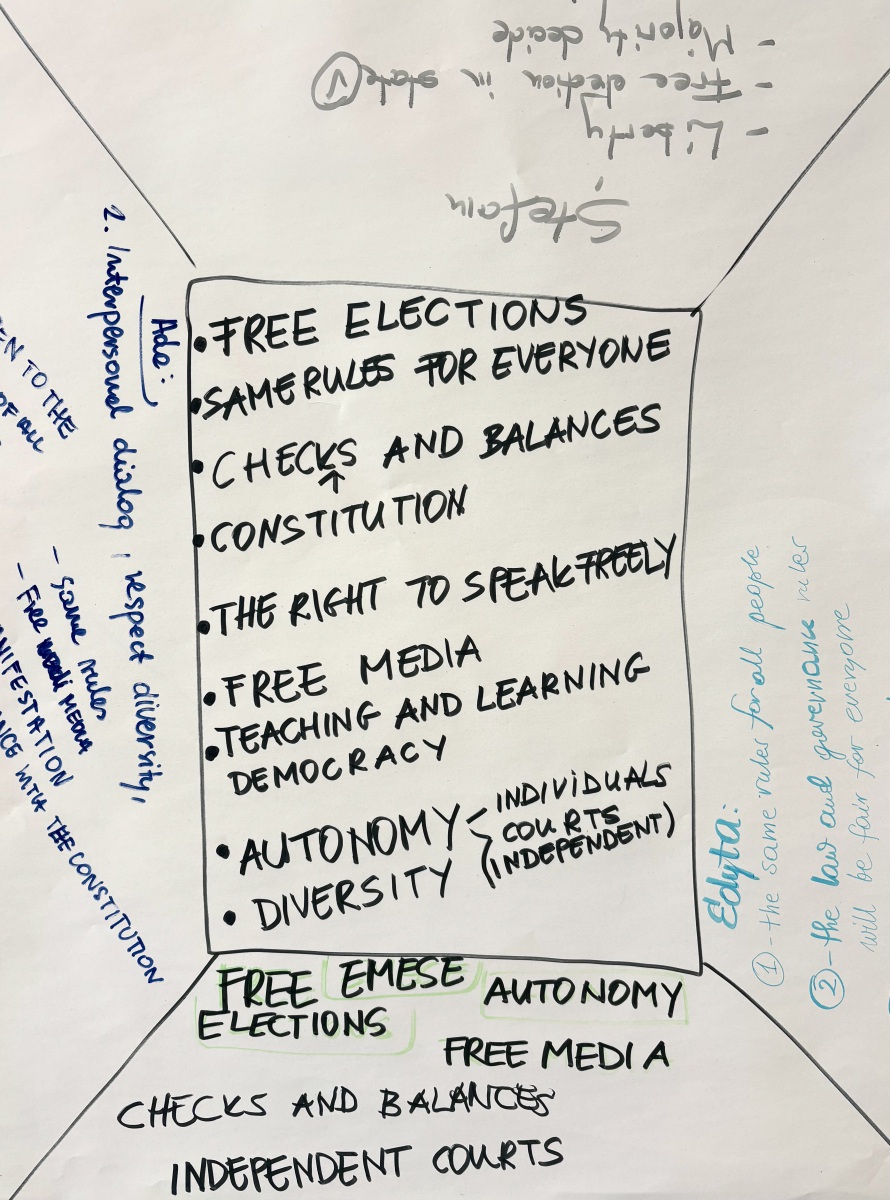 - Majority decide
- Free election in state (1)
- Liberty
Ștefan
Ade:
2. Interpersonal dialog, respect diversity,
EN TO THE
OF ALL
- same rules
- Free MEDIA
ANIFESTATION
ANCE WITH THE CONSTITUTION
• FREE ELECTIONS
• SAME RULES FOR EVERYONE
• CHECKS AND BALANCES
• CONSTITUTION
• THE RIGHT TO SPEAK FREELY
• FREE MEDIA
• TEACHING AND LEARNING
DEMOCRACY
• AUTONOMY - INDIVIDUALS
COURTS
(INDEPENDENT)
• DIVERSITY
Edyta:
① - the same rules for all people.
② - the law and governance rules
will be fair for everyone
EMESE
FREE
ELECTIONS
AUTONOMY
FREE MEDIA
CHECKS AND BALANCES
INDEPENDENT COURTS